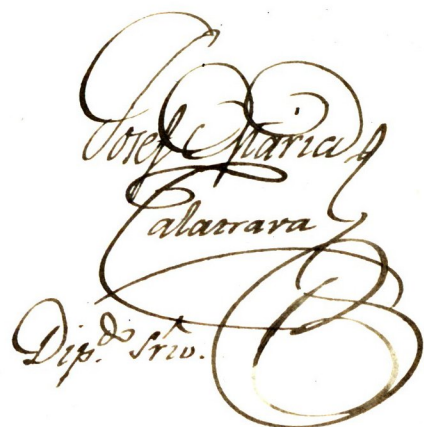 Josef Maria
Calatrava
Dip.do Srio.